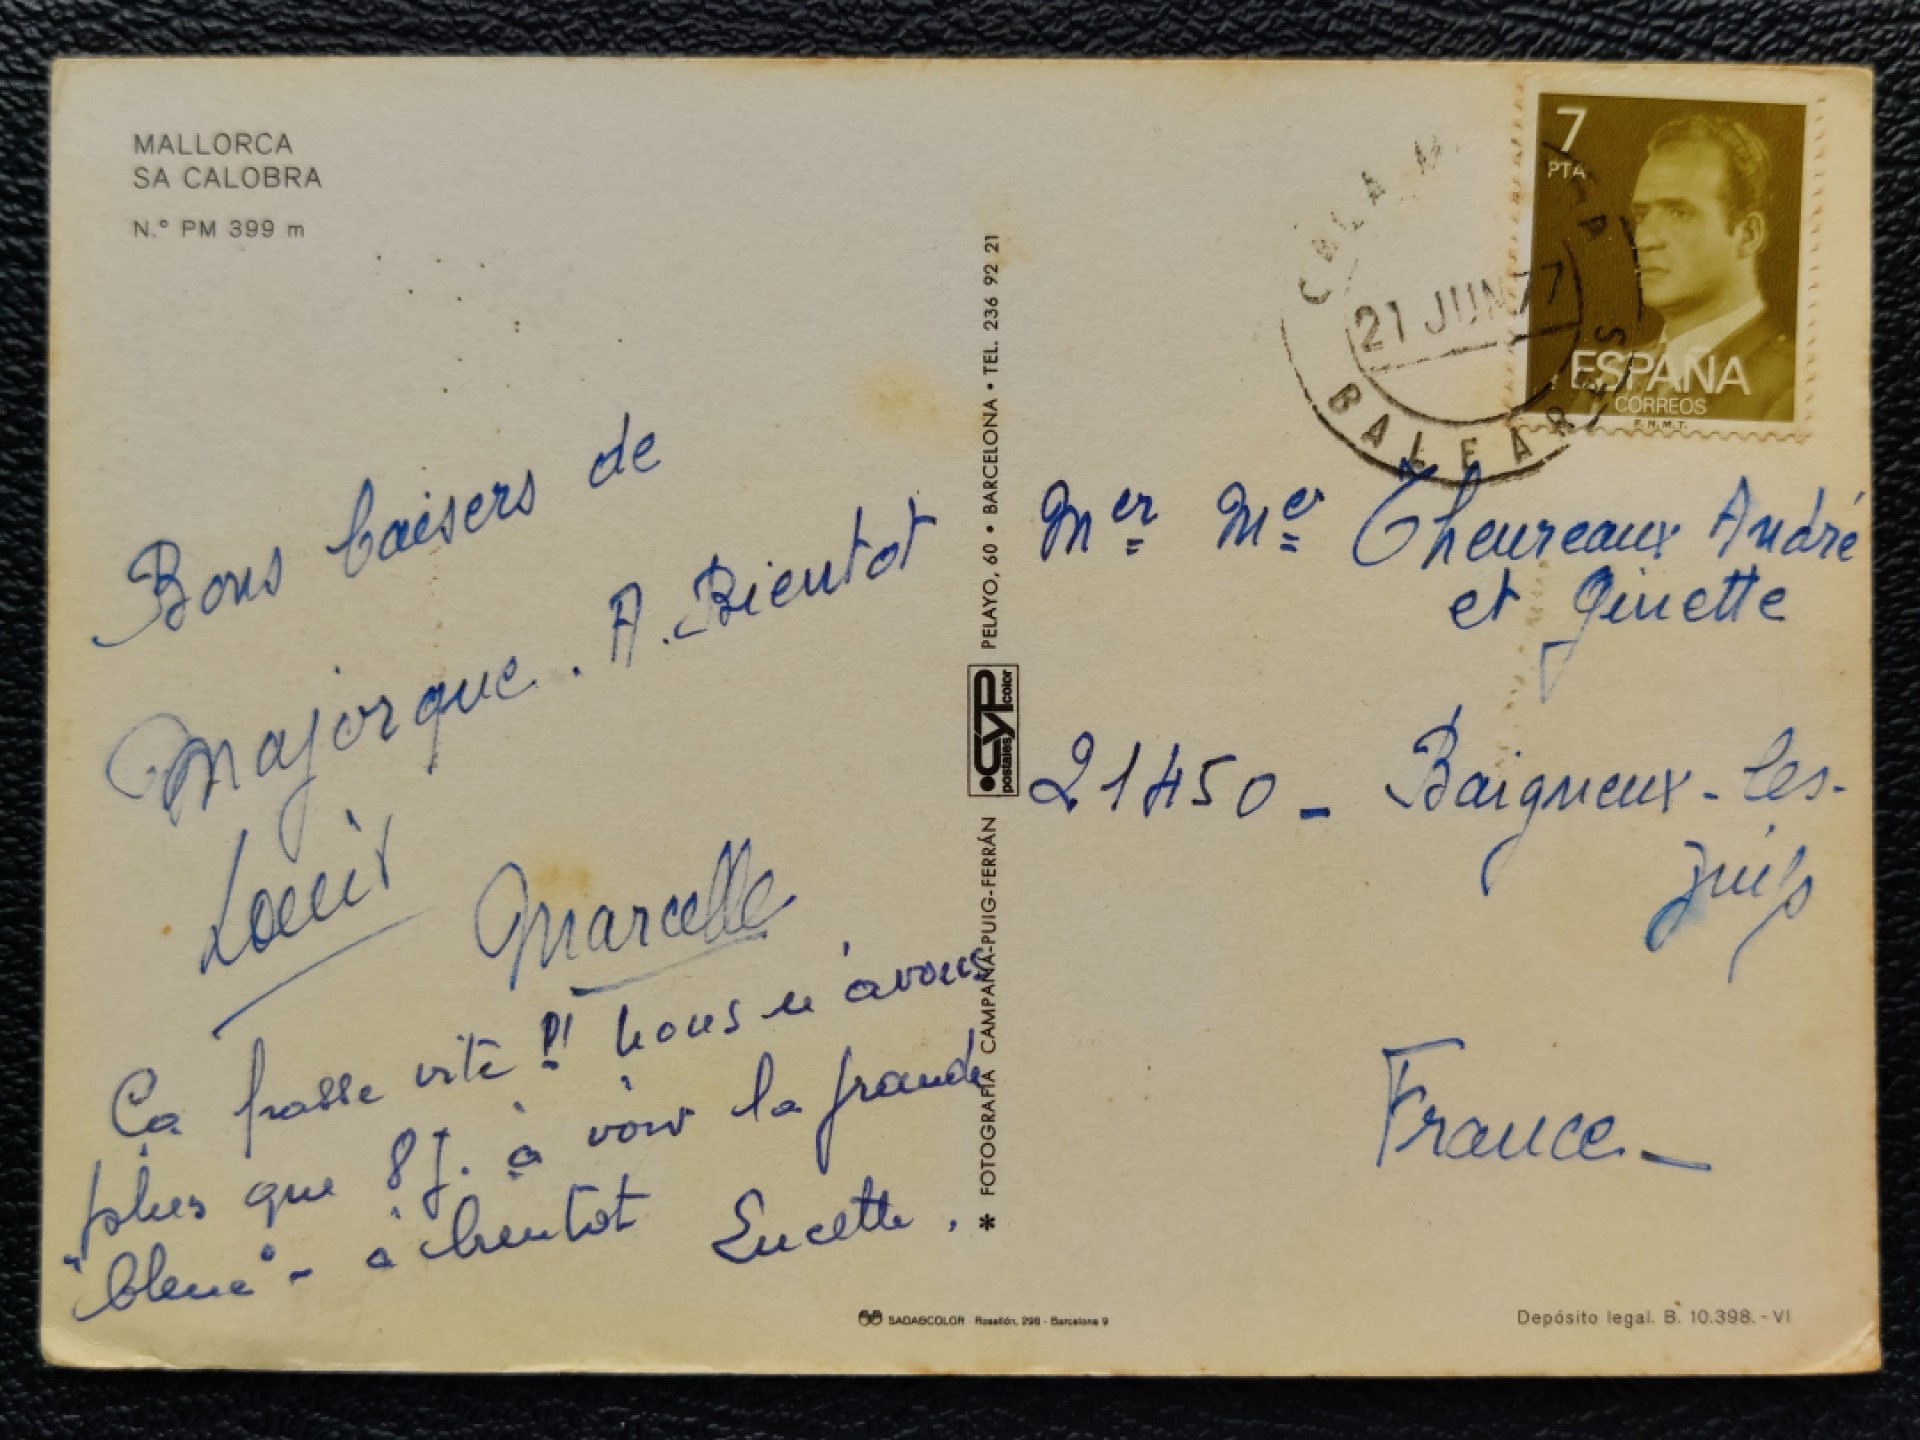 MALLORCA
SA CALOBRA
N.° PM 399 m
Bons baisers de
Majorque. A. Bientot
Louis
Marcelle
Ca passe vite !! nous n'avons
plus que 8 J. à voir la grande
"bleue" - à bientot Lucette.
PELAYO, 60 • BARCELONA • TEL. 236 92 21
CYP
postales color
* FOTOGRAFIA CAMPAÑA-PUIG-FERRÁN
7
PTA
ESPAÑA
CORREOS
F.N.M.T.
21 JUN 77
BALEARES
Mer Me Theureaux André
et Ginette
21450 - Baigneux-les-
Juifs
France -
SADAGCOLOR - Rosellón, 298 - Barcelona 9
Depósito legal. B. 10.398. - VI